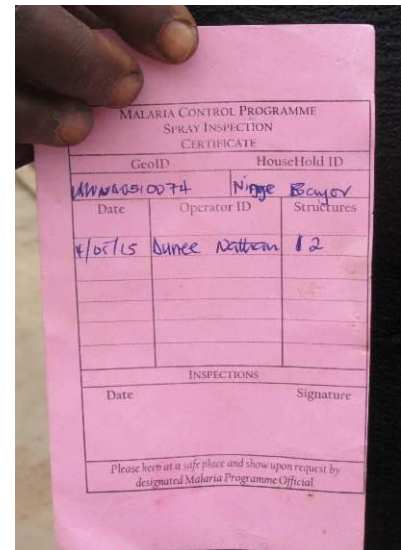 MALARIA CONTROL PROGRAMME
SPRAY INSPECTION
CERTIFICATE
GeoID HouseHold ID
Date Operator ID Structures
/05/15 Nathan 12
INSPECTIONS
Date Signature
Please keep at a safe place and show upon request by
designated Malaria Programme Official